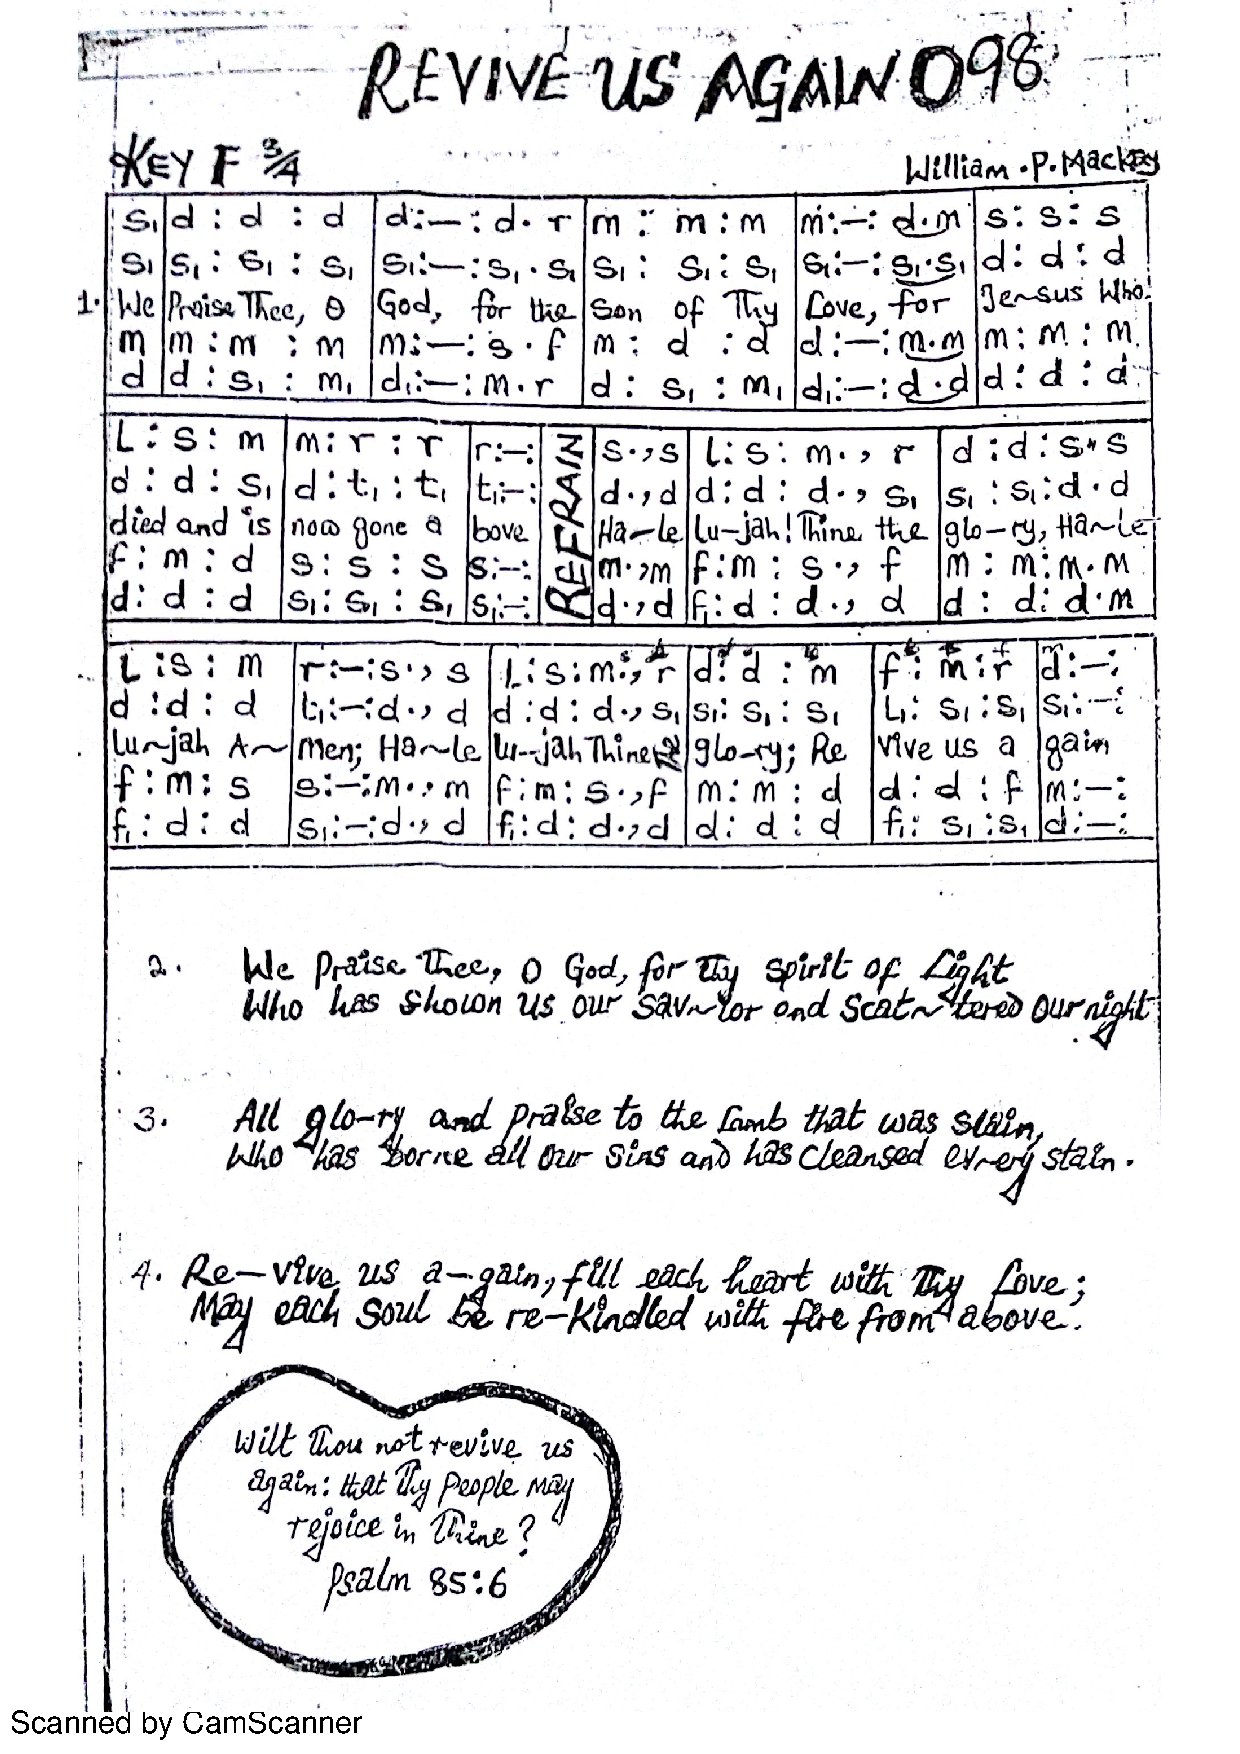 REVIVE US AGAIN 098
KEY F 3/4
William . P. Mackay
s₁ | d : d : d | d : – : d . r | m : m : m | m : – : d . m | s : s : s
s₁ | s₁ : s₁ : s₁ | s₁ : – : s₁ . s₁ | s₁ : s₁ : s₁ | s₁ : – : s₁ . s₁ | d : d : d
1. We | Praise Thee, O | God, for the | Son of Thy | Love, for | Jersus Who
m | m : m : m | m : – : s . f | m : d : d | d : – : m . m | m : m : m
d | d : s₁ : m₁ | d₁ : – : m . r | d : s₁ : m₁ | d₁ : – : d . d | d : d : d
L : s : m | m : r : r | r : – : | REFRAIN | s . , s | l : s : m . , r | d : d : s . s
d : d : s₁ | d : t₁ : t₁ | t₁ : – : | d . , d | d : d : d . , s₁ | s₁ : s₁ : d . d
died and is | now gone a | bove | Ha~le | lu-jah! Thine the | glo-ry, Ha~le
f : m : d | s : s : s | s : – : | m . , m | f : m : s . , f | m : m : m . m
d : d : d | s₁ : s₁ : s₁ | s₁ : – : | d . , d | f₁ : d : d . , d | d : d : d . m
L : s : m | r : – : s . , s | L : s : m . , r | d : d : m | f : m : r | d : – :
d : d : d | t₁ : – : d . , d | d : d : d . , s₁ | s₁ : s₁ : s₁ | L₁ : s₁ : s₁ | s₁ : – :
lu~jah A~ | men; Ha~le | lu-jah Thine | glo-ry; Re | vive us a | gain
f : m : s | s : – : m . , m | f : m : s . , f | m : m : d | d : d : f | m : – :
f₁ : d : d | s₁ : – : d . , d | f₁ : d : d . , d | d : d : d | f₁ : s₁ : s₁ | d : – :
2. We praise Thee, O God, for Thy spirit of Light
Who has shown us our Sav~ior and scat~tered our night.
3. All glo-ry and praise to the Lamb that was slain,
Who has borne all our sins and has cleansed ev-ery stain.
4. Re-vive us a-gain, fill each heart with Thy Love;
May each soul be re-kindled with fire from above.
Wilt Thou not revive us
again: that Thy people may
rejoice in Thine?
Psalm 85:6
Scanned by CamScanner